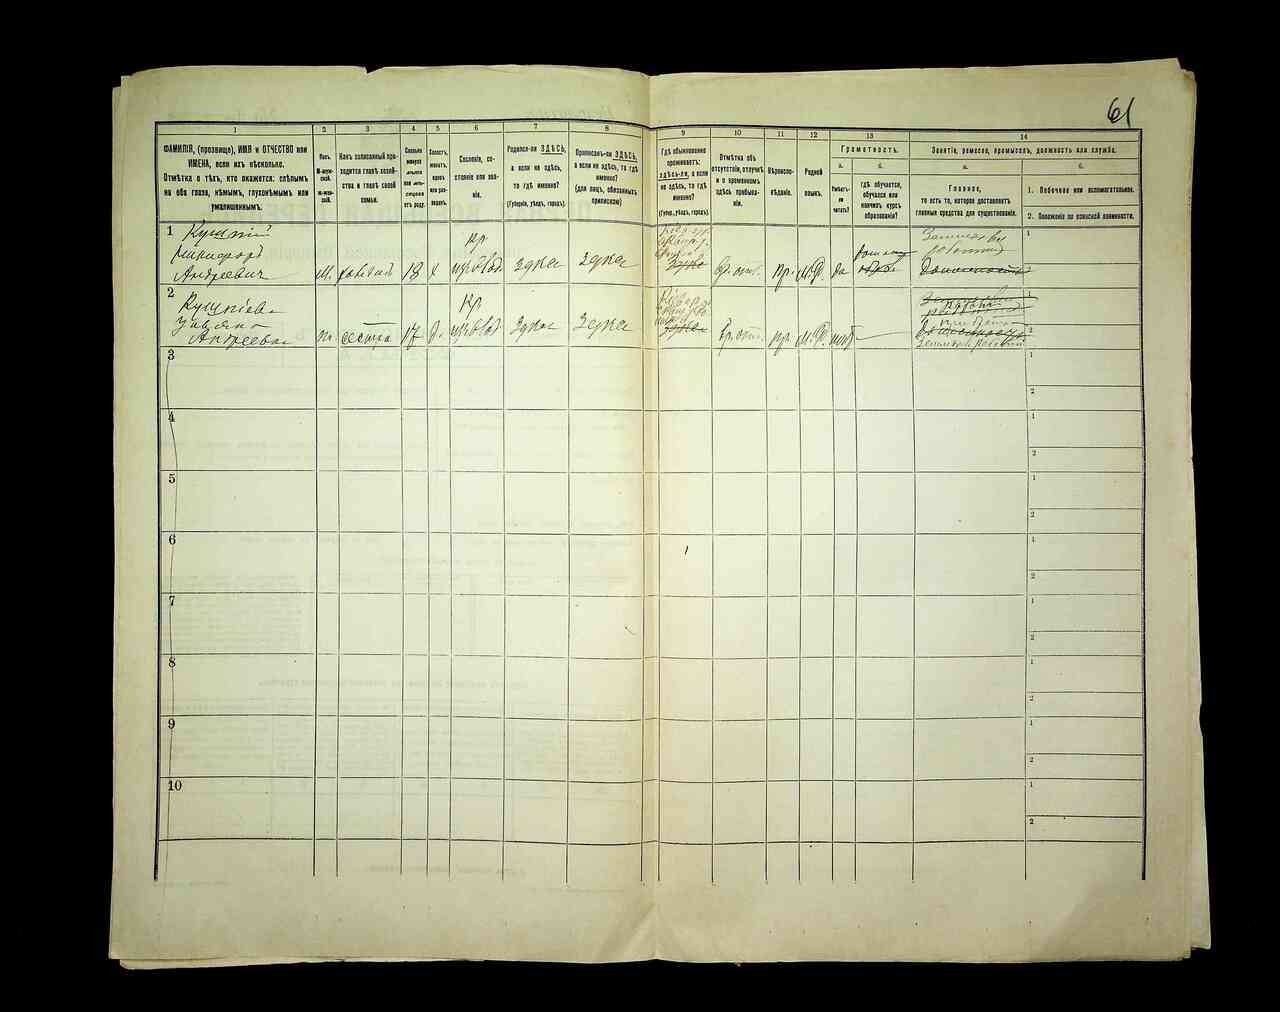 61
1
2
3
4
5
6
7
8
9
10
11
12
13
14
ФАМИЛІЯ, (прозвище), ИМЯ и ОТЧЕСТВО или
ИМЕНА, если ихъ нѣсколько.
Отмѣтка о тѣхъ, кто окажется: слѣпымъ
на оба глаза, нѣмымъ, глухонѣмымъ или
умалишеннымъ.
Полъ.
М-мужской.
Ж-женской.
Какъ записанный приходится главѣ хозяйства и главѣ своей
семьи.
Сколько
минуло
лѣтъ
или мѣсяцевъ
отъ роду.
Холостъ,
женатъ,
вдовъ
или разведенъ.
Сословіе, состояніе или званіе.
Родился-ли ЗДѢСЬ,
а если не здѣсь,
то гдѣ именно?
(Губернія, уѣздъ, городъ).
Приписанъ-ли ЗДѢСЬ,
а если не здѣсь, то гдѣ
именно?
(для лицъ, обязанныхъ
припискою)
Гдѣ обыкновенно
проживаетъ:
здѣсь-ли, а если
не здѣсь, то гдѣ
именно?
(Губер., уѣздъ, городъ).
Отмѣтка объ
отсутствіи, отлучкѣ
и о временномъ
здѣсь пребываніи.
Вѣроисповѣданіе.
Родной
языкъ.
Грамотность.
а.
б.
Умѣетъ-ли
читать?
гдѣ обучается,
обучался или
кончилъ курсъ
образованія?
Занятіе, ремесло, промыселъ, должность или служба.
а.
б.
Главное,
то есть то, которое доставляетъ
главныя средства для существованія.
1. Побочное или вспомогательное.
2. Положеніе по воинской повинности.
1
Никифоръ
Андреевичъ
М.
18
х
кр
здѣсь
здѣсь
вр. от.
пр.
М.Р.
да
1
2
Андреевна
ж.
сестра
17
д.
кр
здѣсь
здѣсь
вр. от.
пр.
М.Р.
нѣтъ
1
2
3
1
2
4
1
2
5
1
2
6
1
2
7
1
2
8
1
2
9
1
2
10
1
2